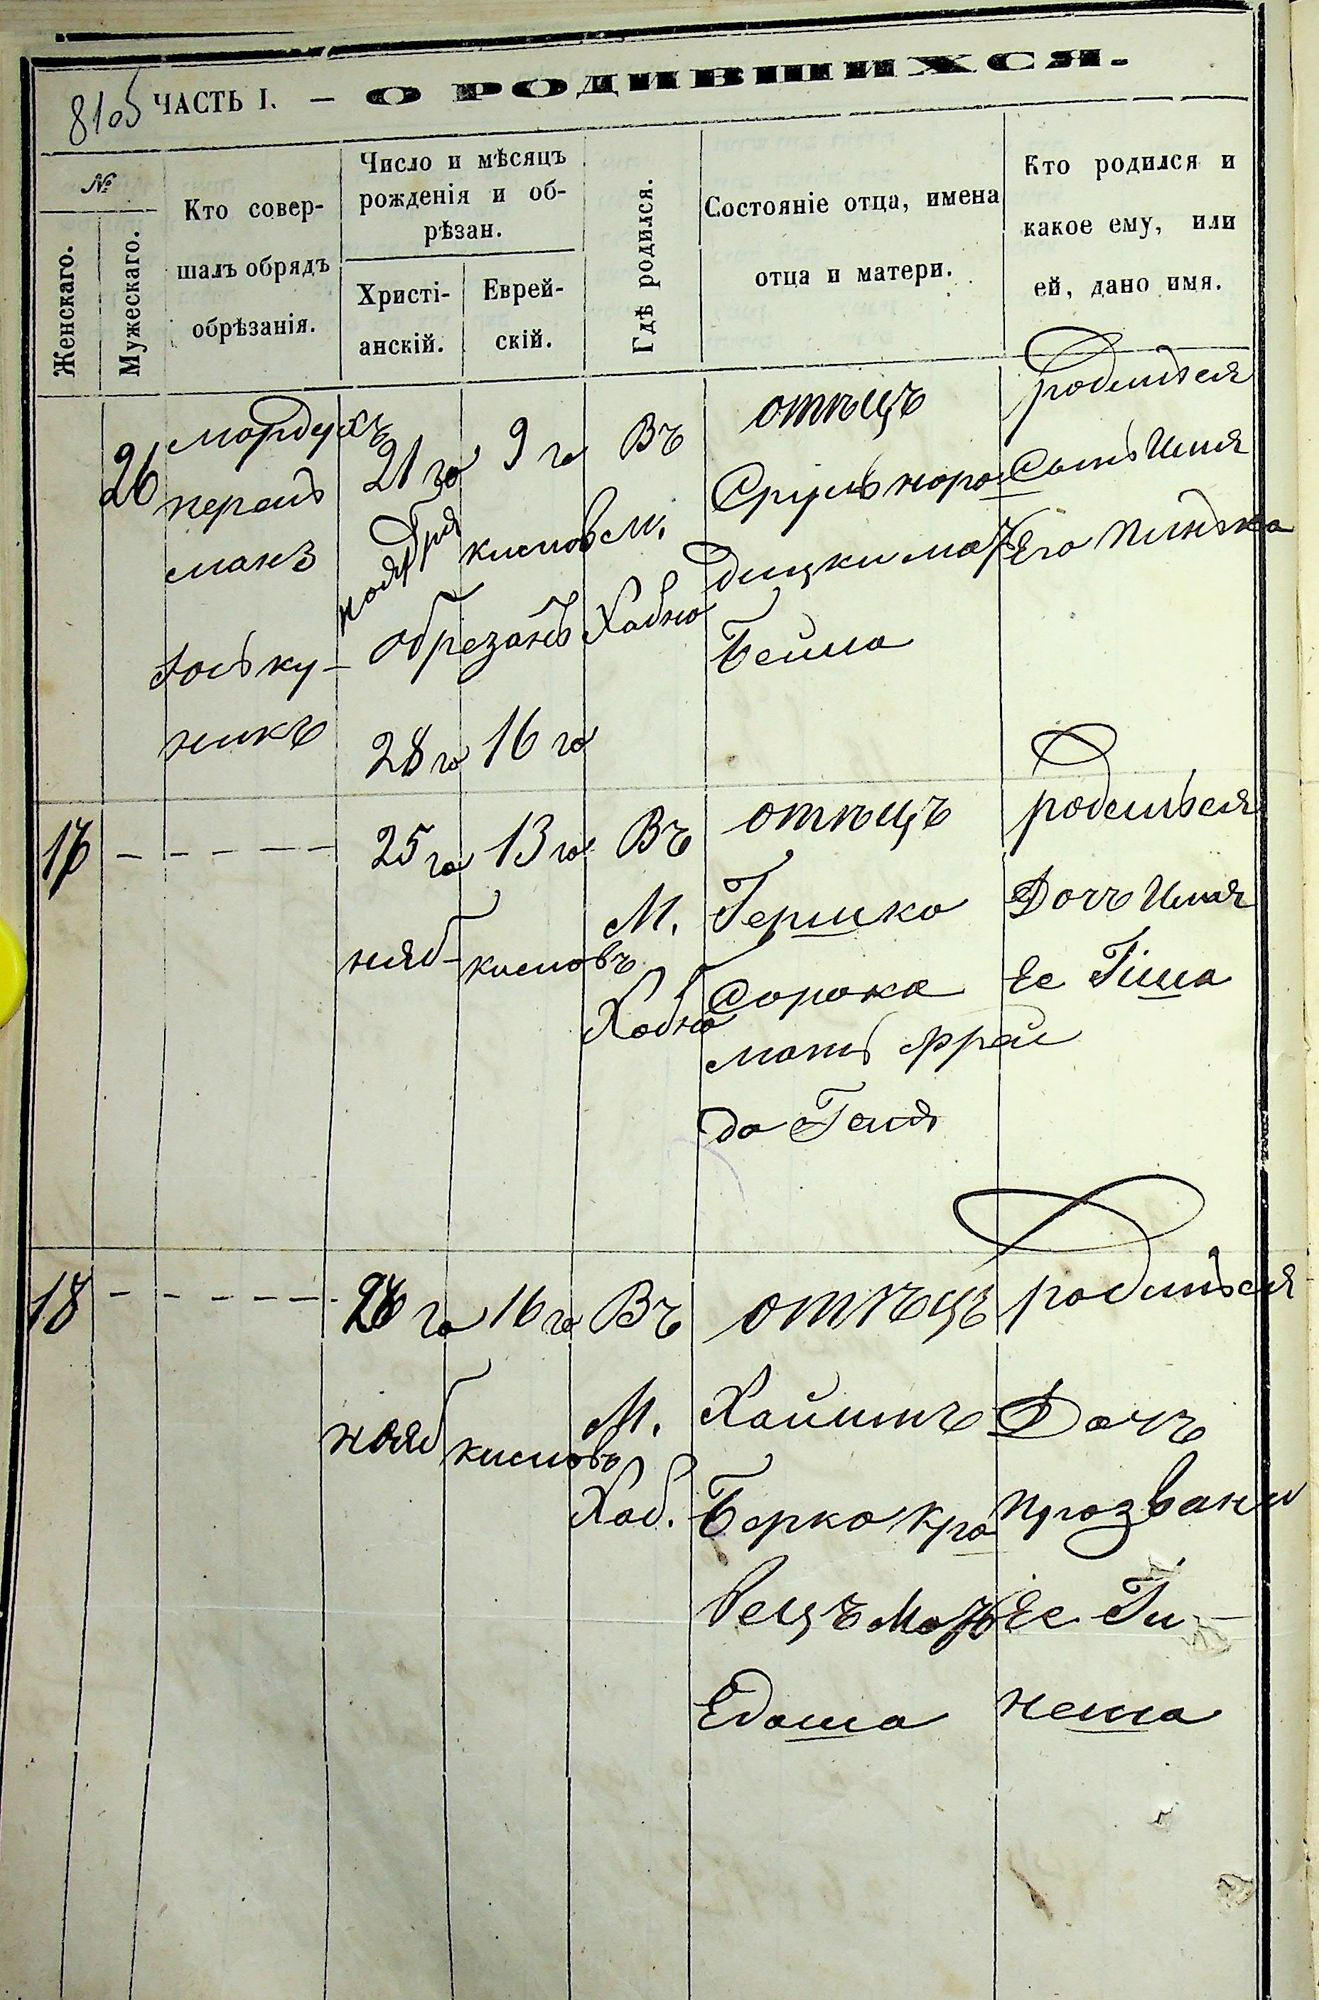 8105 ЧАСТЬ I. — О РОДИВШИХСЯ.
№
Женскаго.
Мужескаго.
Кто совер-
шалъ обрядъ
обрѣзанія.
Число и мѣсяцъ
рожденія и об-
рѣзан.
Христі-
анскій.
Еврей-
скій.
Гдѣ родился.
Состояніе отца, имена
отца и матери.
Кто родился и
какое ему, или
ей, дано имя.
26
мордухъ
перель
манз
Іоську-
никъ
21 го
ноября
обрезанъ
28 го
9 го
кислов
16 го
Въ
м.
Хабно
отѣцъ
Сруль наро
дицки мат
Бейла
родилься
Сынъ Имя
Его Пинька
17
25 го
нояб
13 го
кисловъ
Въ
М.
Хабно
отѣцъ
Гершко
Сорока
мать Фрей
да Геня
родилься
Дочъ Имя
Ее Гіша
18
28 го
нояб
16 го
кисловъ
Въ
М.
Хаб.
отѣцъ
Хаимъ
Берко Кра
вецъ мать
Едаша
родилься
Дочъ
прозвани
Ее Ги-
неша